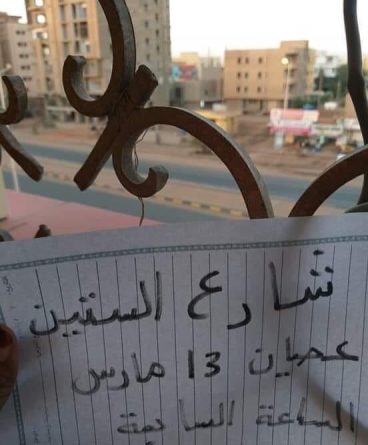 شارع الستين
عصيان 13 مارس
الساعة السابعة